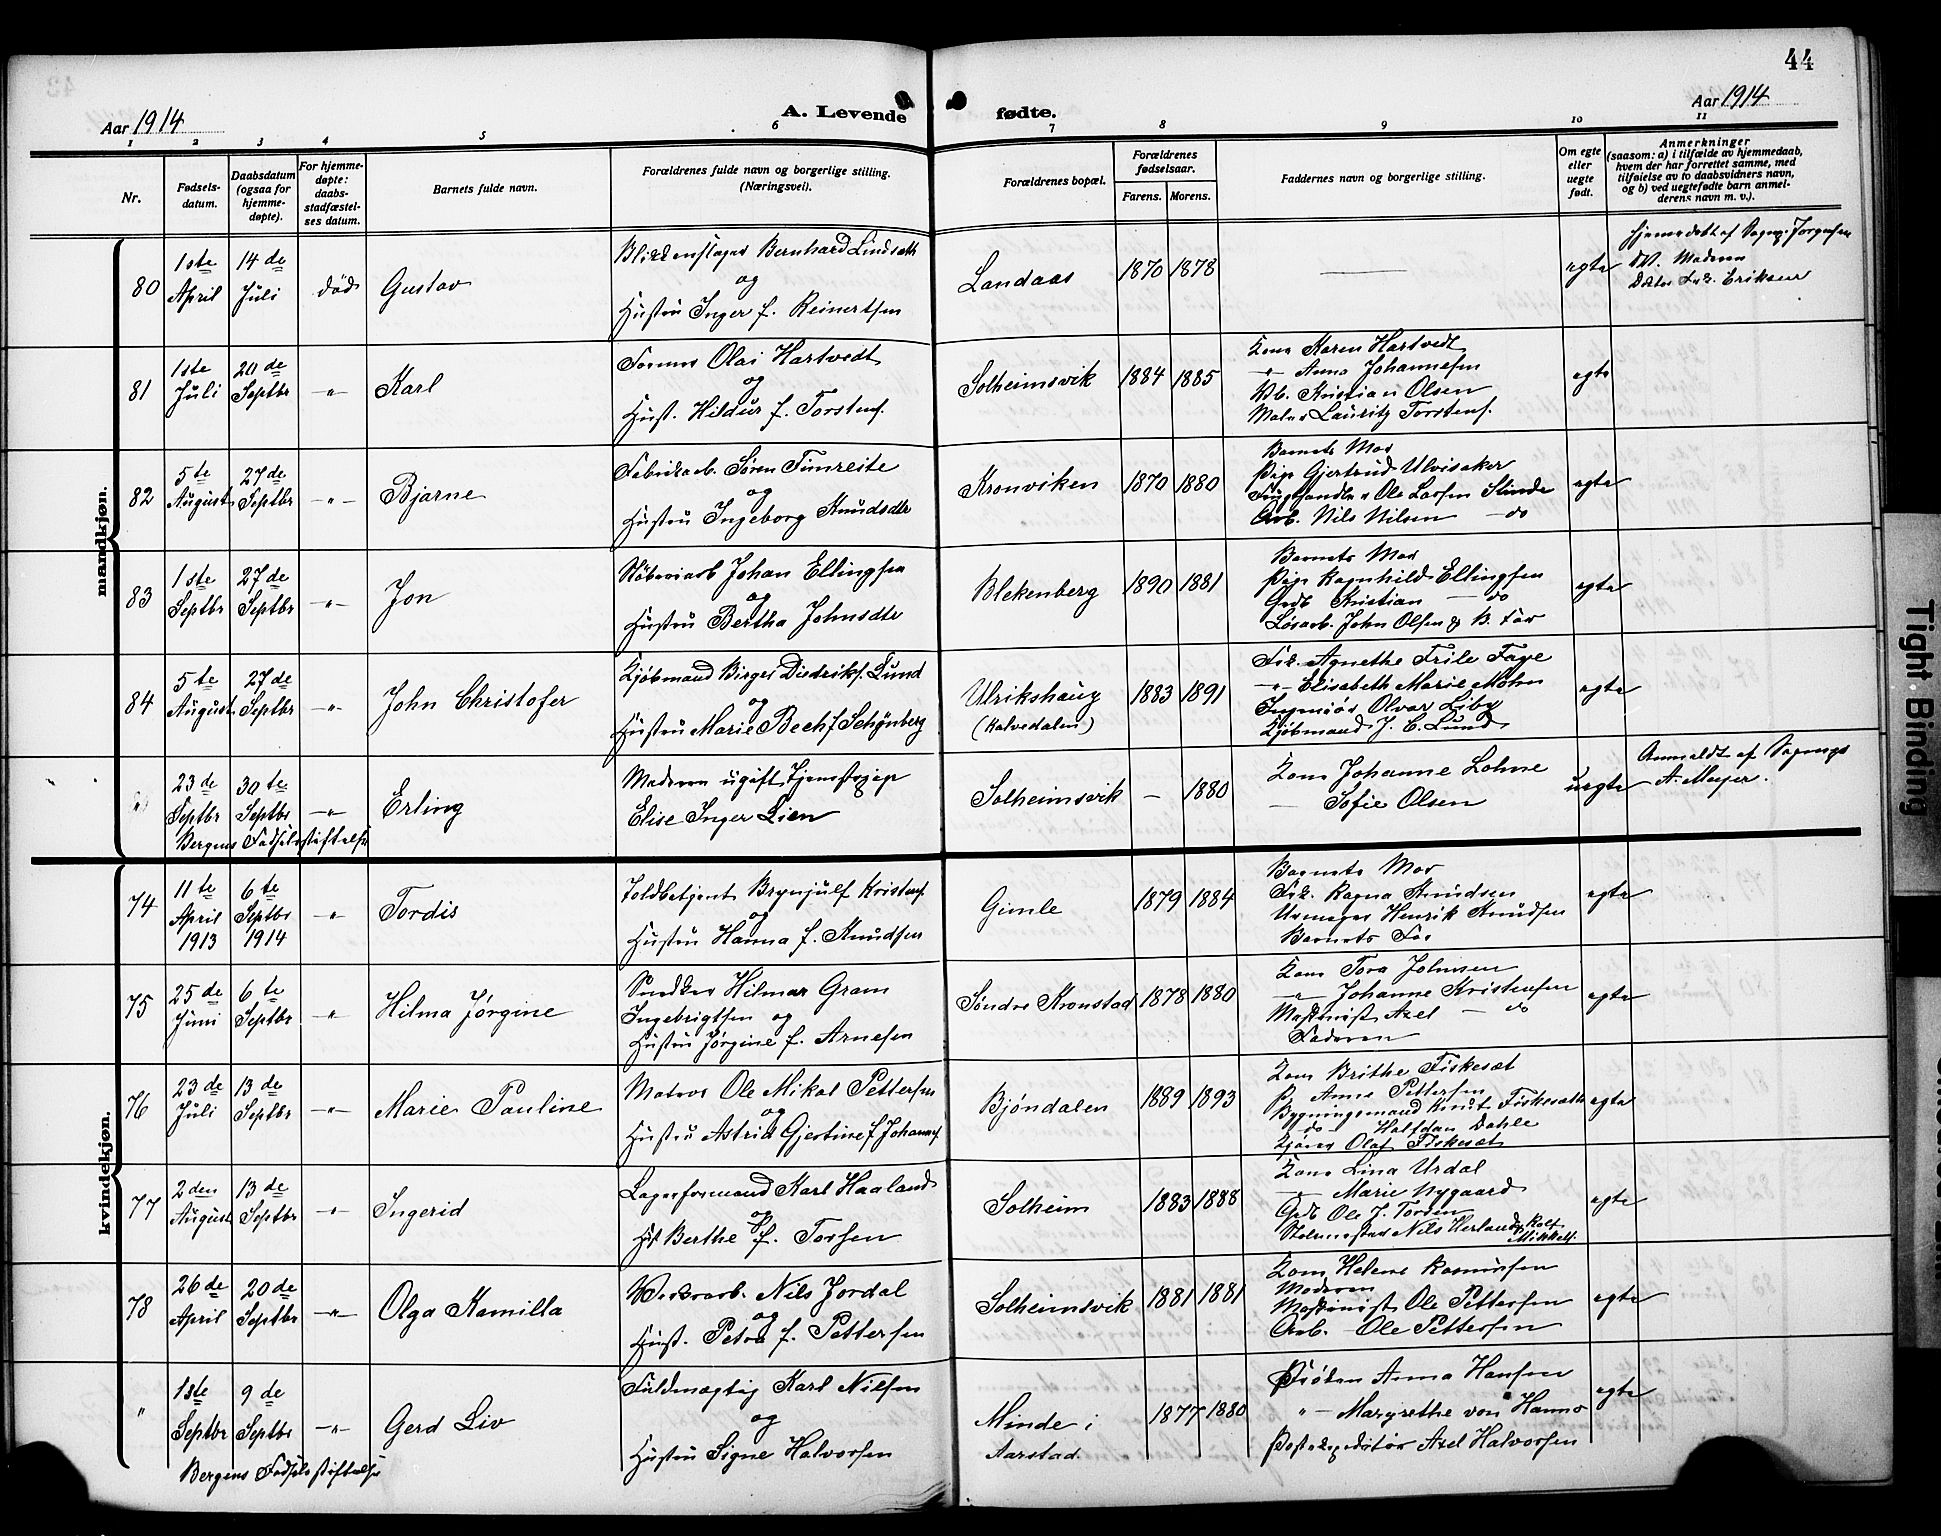 44
Aar 1914
A. Levende fødte.
Aar 1914
1 2 3 4 5 6 7 8 9 10 11
Nr.
Fødsels-
datum.
Daabsdatum
(ogsaa for
hjemme-
døpte).
For hjemme-
døpte:
daabs-
stadfæstel-
ses datum.
Barnets fulde navn.
Forældrenes fulde navn og borgerlige stilling.
(Næringsvei).
Forældrenes bopæl.
Forældrenes
fødselsaar.
Farens. Morens.
Faddernes navn og borgerlige stilling.
Om egte
eller
uegte
født.
Anmerkninger
(saasom: a) i tilfælde av hjemmedaab,
hvem der har forrettet samme, med
tilføielse av to daabsvidners navn,
og b) ved uegtefødte barn anmel-
derens navn m. v.).
mandkjøn.
80
1ste
April
14de
Juli
død
Gustav
Blikkenslager Bernhard Lindseth
og
Hustru Inger f. Reinertsen
Landaas
1870 1878
egte
Hjemmedøbt af Sognepr. Jørgensen
DV. Moderen
Doktor Frk. Eriksen
81
1ste
Juli
20de
Septbr
-"-
Karl
Former Olai Hartvedt
og
Hust. Hildur f. Torstens.
Solheimsvik
1884 1885
Kone Karen Hartvedt
-"- Anna Johannesen
Kristian Olsen
Maler Lauritz Torstens.
egte
82
5te
August
27de
Septbr
-"-
Bjarne
Fabrikarb. Søren Timreite
og
Hustru Ingeborg Knudsdtr
Kronviken
1870 1880
Barnets Mor
Pige Gjertrud Ulvisaker
Ole Larsen Slinde
Arb. Nils Nilsen - do
egte
83
1ste
Septbr
27de
Septbr
-"-
Jon
Støberiarb Johan Ellingsen
og
Hustru Bertha Johnsdtr
Blekenberg
1890 1881
Barnets Mor
Pige Ragnhild Ellingsen
Grdb Kristian - do
Løsarb. John Olsen & B. Far
egte
84
5te
August
27de
Septbr
-"-
John Christofer
Kjøbmand Birger Diedriks. Lund
og
Hustru Marie Bech f. Schønberg
Ulrikshaug
(Kalvedalen)
1883 1891
Frk. Agnethe Frile Faye
-"- Elisabeth Marie Mohn
Ingeniør Olvar Liby
Kjøbmand J. C. Lund
egte
23de
Septbr
30te
Septbr
-"-
Erling
Bergens Fødselsstiftelse
Moderen ugift Tjenestepige
Elise Inger Lien
Solheimsvik
- 1880
Kone Johanne Lohne
— Sofie Olsen
uegte
Anmeldt af Sogneps
A. Meyer.
kvindekjøn.
74
11te
April
1913
6te
Septbr
1914
-"-
Tordis
Toldbetjent Brynjulf Kristens
og
Hustru Hanna f. Knudsen
Gimle
1879 1884
Barnets Mor
Frk. Ragna Knudsen
Urmager Henrik Knudsen
Barnets Far
egte
75
25de
Juni
6te
Septbr
-"-
Hilma Jørgine
Snedker Hilmar Gram
Ingebrigtsen og
Hustru Jørgine f. Arnesen
Søndre Kronstad
1878 1880
Kone Tora Johnsen
-"- Johanne Kristensen
Maskinist Axel - do
Faderen
egte
76
23de
Juli
13de
Septbr
-"-
Marie Pauline
Matros Ole Mikal Pettersen
og
Hustru Astrid Gjertine f Johannes
Bjøndalen
1889 1893
Kone Brithe Fiskesæt
P. Anna Pettersen
Bygningsmand Knut Fiskesæth
do Halfdan Dahle
Kjører Olaf Fiskesæt
egte
77
2den
August
13de
Septbr
-"-
Ingerid
Lagerformand Karl Haaland
og
Hst Berthe f. Torsen
Solheim
1883 1888
Kone Lina Urdal
-"- Marie Nygaard
Grdb Ole J. Torsen
Nils Herland Rolf
Mikkels.
egte
78
26de
April
20de
Septbr
-"-
Olga Kamilla
Verkarb. Nils Jordal
og
Hust. Petra f. Pettersen
Solheimsvik
1881 1881
Kone Helene Rasmussen
Moderen
Maskinist Ole Pettersen
Arb. - Ole Pettersen
egte
"
1ste
Septbr
9de
Septbr
-"-
Gerd Liv
Bergens Fødselsstiftelse
Fuldmægtig Karl Nilsen
og
Hustru Signe Halvorsen
Minde i
Aarstad.
1877 1880
Frøken Anna Hansen
"- Margrethe von Hanno
Postexpeditør Axel Halvorsen
egte
Tight Binding